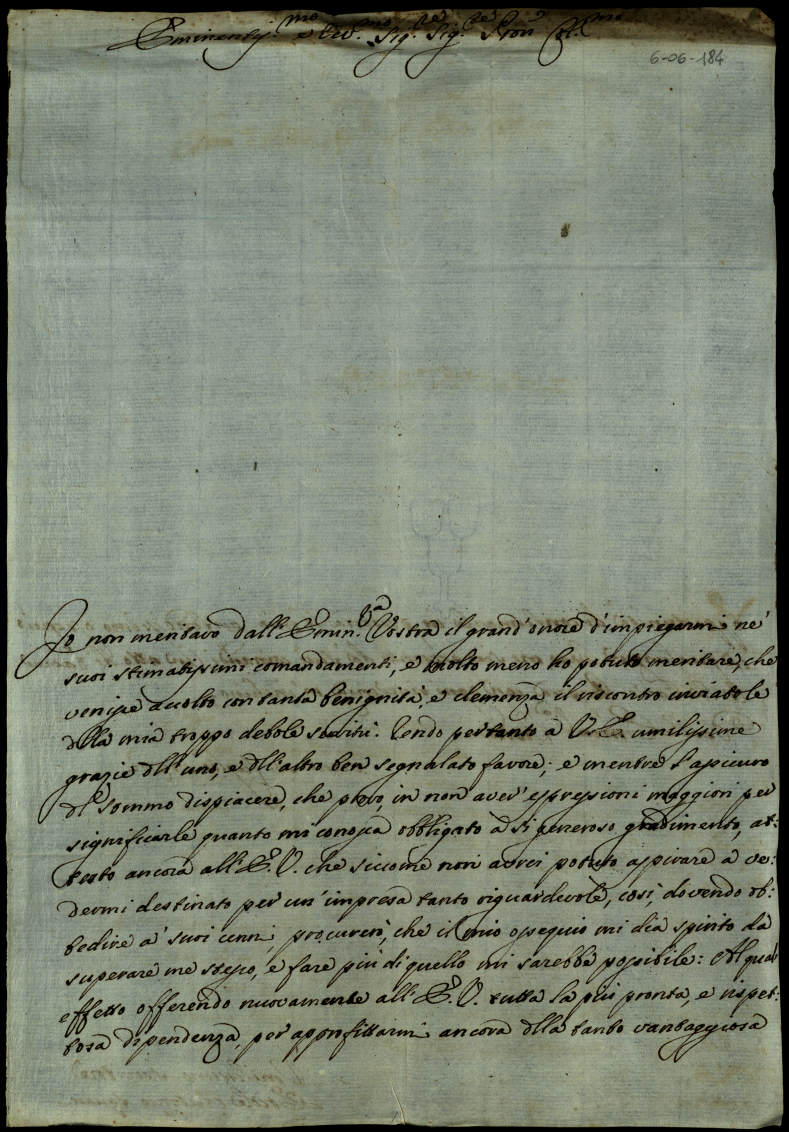 Eminentiss.mo e Rev.mo Sig.re Sig.re Pron Col.mo
6-06-184
Jo non meritavo dall'Emin.za Vostra il grand'onore d'impiegarmi ne'
suoi stimatissimi comandamenti, e molto meno ho potuto meritare, che
venisse accolto con tanta benignità, e clemenza il riscontro inviatole
dlla mia troppo debole servitù. Rendo per tanto à V.E. umilissime
grazie dll'uno, e dll'altro ben segnalato favore; e mentre l'assicuro
dl sommo dispiacere, che provo, in non aver' espressioni maggiori per
significarle quanto mi conosca obbligato à si generoso gradimento, at:
testo ancora all'E.V. che siccome non avrei potuto aspirare à ve:
dermi destinato per un'impresa tanto riguardevole, così, dovendo ob:
bedire a' suoi cenni, procurerò, che il mio ossequio mi dia spirito da
superare me stesso, e fare più di quello mi sarebbe possibile: Al qual
effetto offerendo nuovamente all'E.V. tutta la più pronta, e rispet:
tosa dipendenza, per approfittarmi ancora dlla tanto vantaggiosa